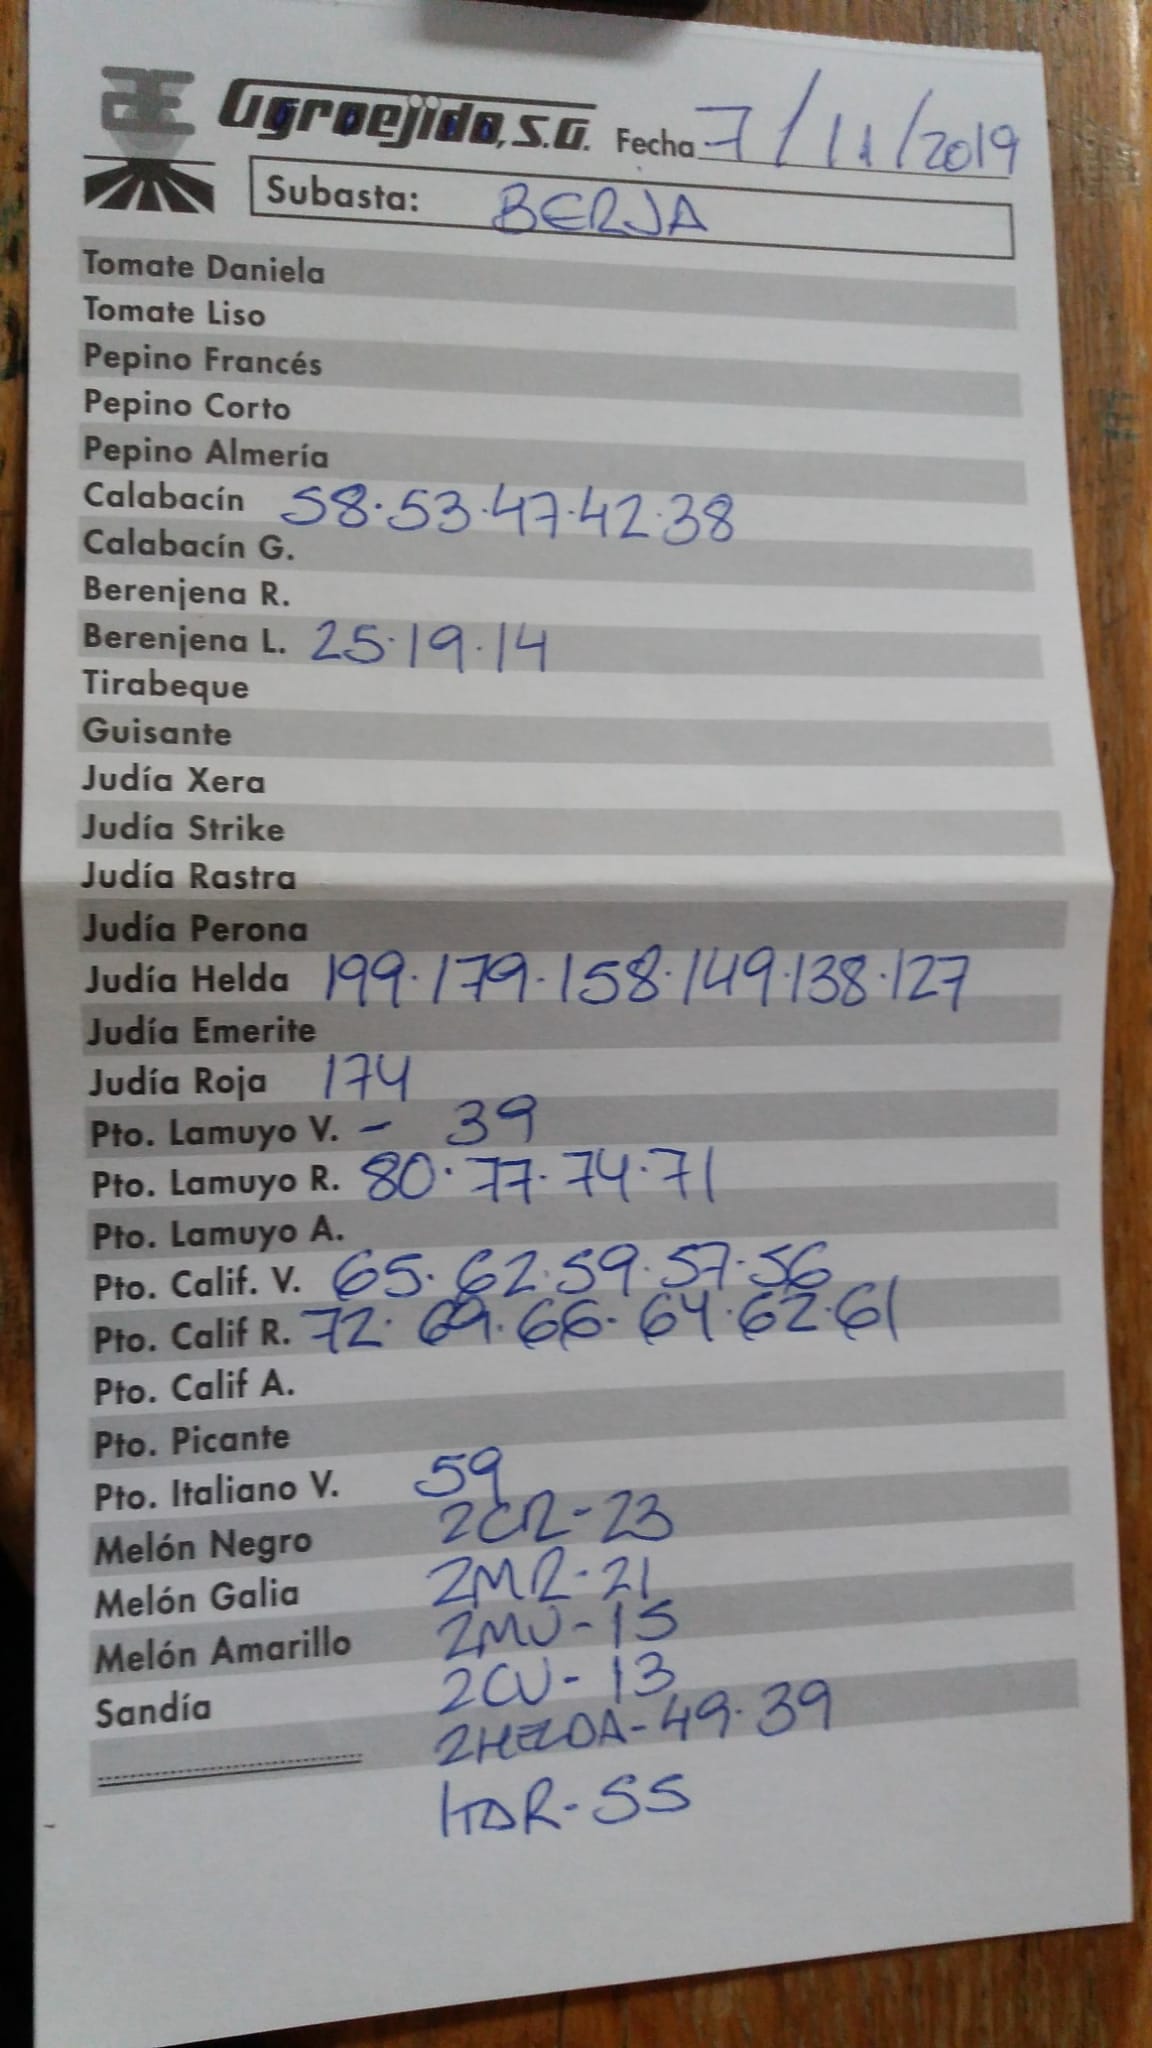 Agroejido, S.A. Fecha 7/11/2019
Subasta: BERJA
Tomate Daniela
Tomate Liso
Pepino Francés
Pepino Corto
Pepino Almería
Calabacín 58.53.47.42.38
Calabacín G.
Berenjena R.
Berenjena L. 25.19.14
Tirabeque
Guisante
Judía Xera
Judía Strike
Judía Rastra
Judía Perona
Judía Helda 199.179.158.149.138.127
Judía Emerite
Judía Roja 174
Pto. Lamuyo V. - 39
Pto. Lamuyo R. 80.77.74.71
Pto. Lamuyo A.
Pto. Calif. V. 65.62.59.57.56
Pto. Calif R. 72.69.66.64.62.61
Pto. Calif A.
Pto. Picante
Pto. Italiano V. 59
Melón Negro 2CR-23
Melón Galia 2MR-21
Melón Amarillo 2MV-15
Sandía 2CV-13
2HELDA-49.39
ITAR-55